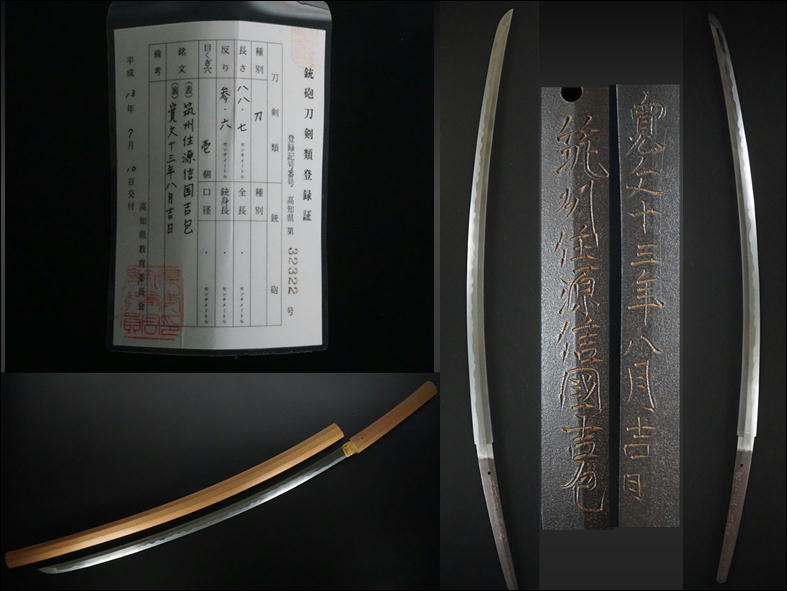 銃砲刀剣類登録証
登録記号番号 高知県 第 32322 号
刀剣類
銃砲
種別 刀 種別
長さ 八八・七 センチメートル 全長 センチメートル
反り 参・六 センチメートル 銃身長 センチメートル
目くぎ穴 壱 個 口径 ・ センチメートル
銘文 (表)筑州住源信国吉包
(裏)寛文十三年八月吉日
備考
平成 13年 7月 10日交付
高知県教育委員会
寛文十三年八月吉日
筑州住源信國吉包